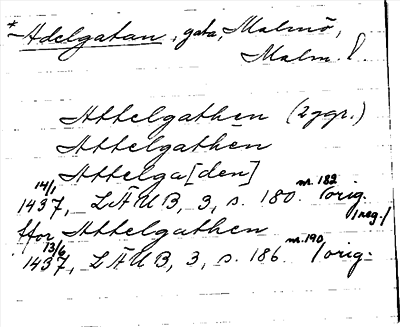 *Adelgatan, gata, Malmö,
Malm. l.
Attelgathen (2 ggr.)
Attelgathen
Attelga[den]
14/1 1437, LÄUB, 3, s. 180 nr. 182 /orig. 1 neg./
Hor Attelgathen
13/6 1437, LÄUB, 3, s. 186 nr. 190 /orig.